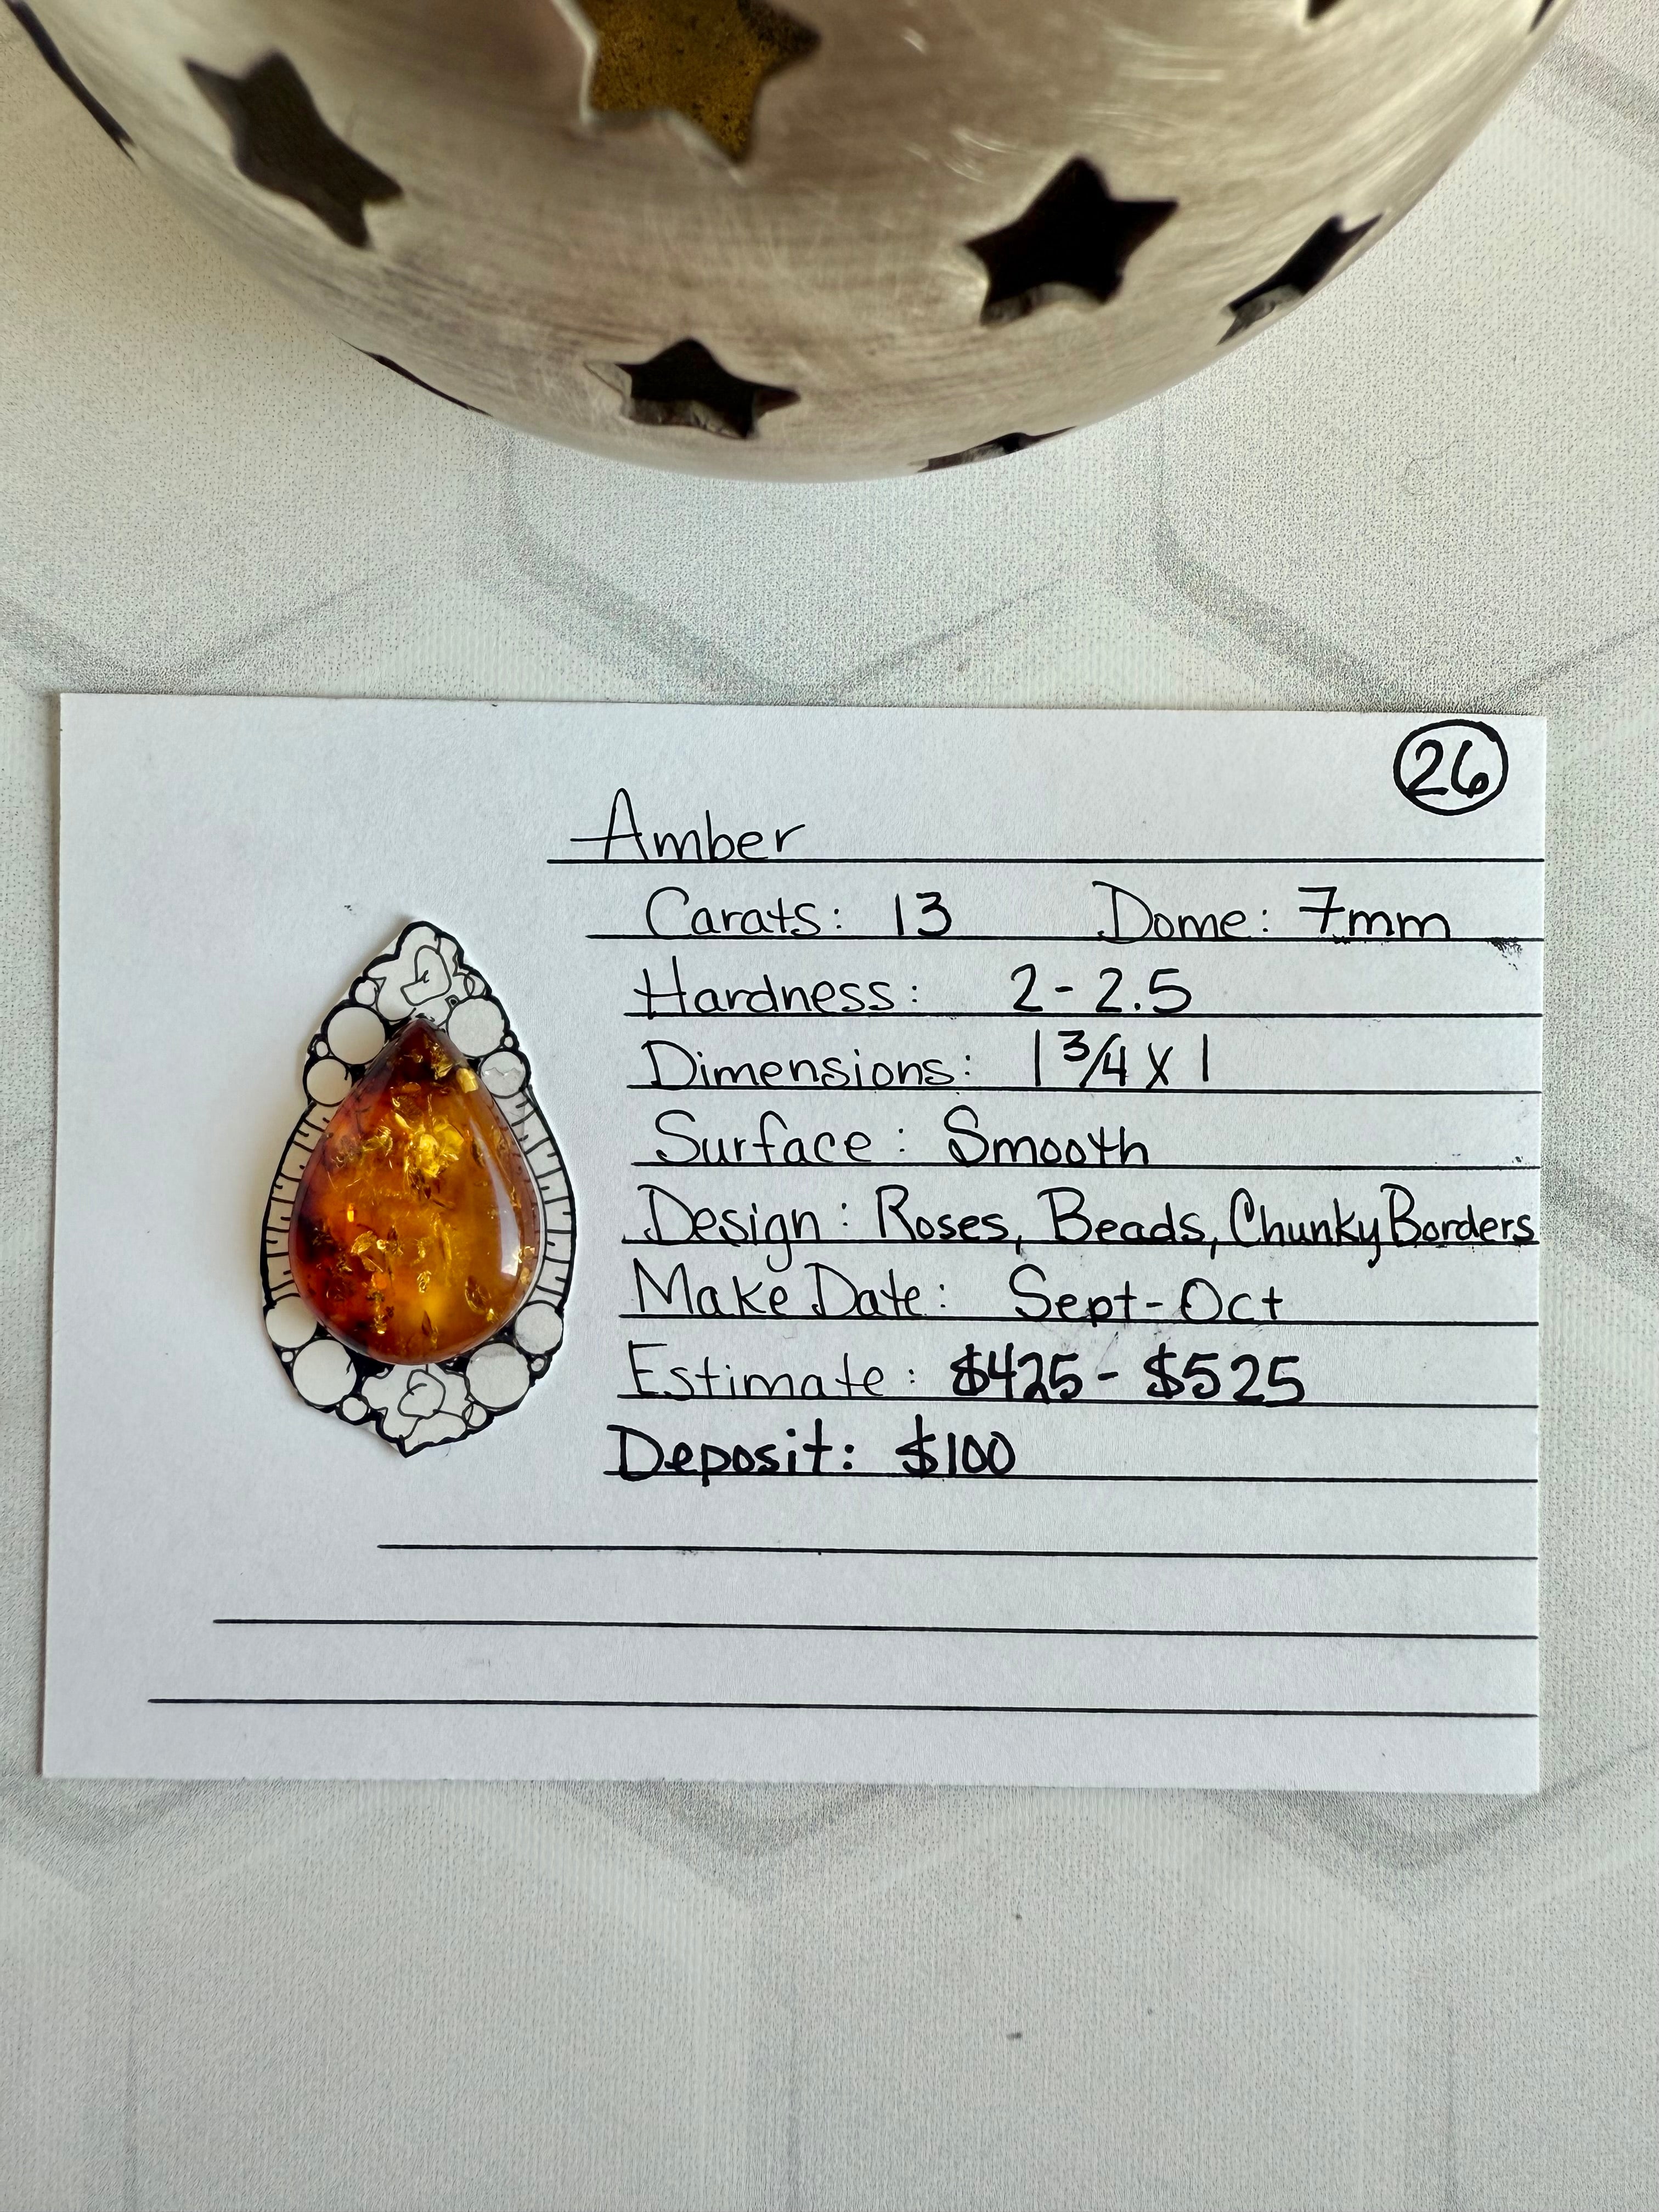 26
Amber
Carats: 13 Dome: 7mm
Hardness: 2-2.5
Dimensions: 1 3/4 X 1
Surface: Smooth
Design: Roses, Beads, Chunky Borders
Make Date: Sept-Oct
Estimate: $425-$525
Deposit: $100